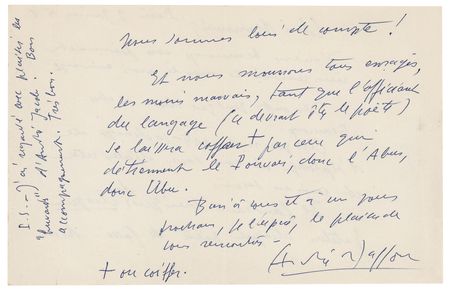 Nous sommes loin de compte !
Et nous mourrons tous enragés,
les moins mauvais, tant que l'officiant
du langage (ce devrait être le poète)
se laissera coffrer + par ceux qui
détiennent le Pouvoir, donc l'Abus,
donc Ubu.
Bien à vous et à un jour
prochain, je l'espère, le plaisir de
vous rencontrer –
+ ou coiffer.
P.S. – J'ai regardé avec plaisir les
d'André Jacob. Bon
accompagnement. Très bon.